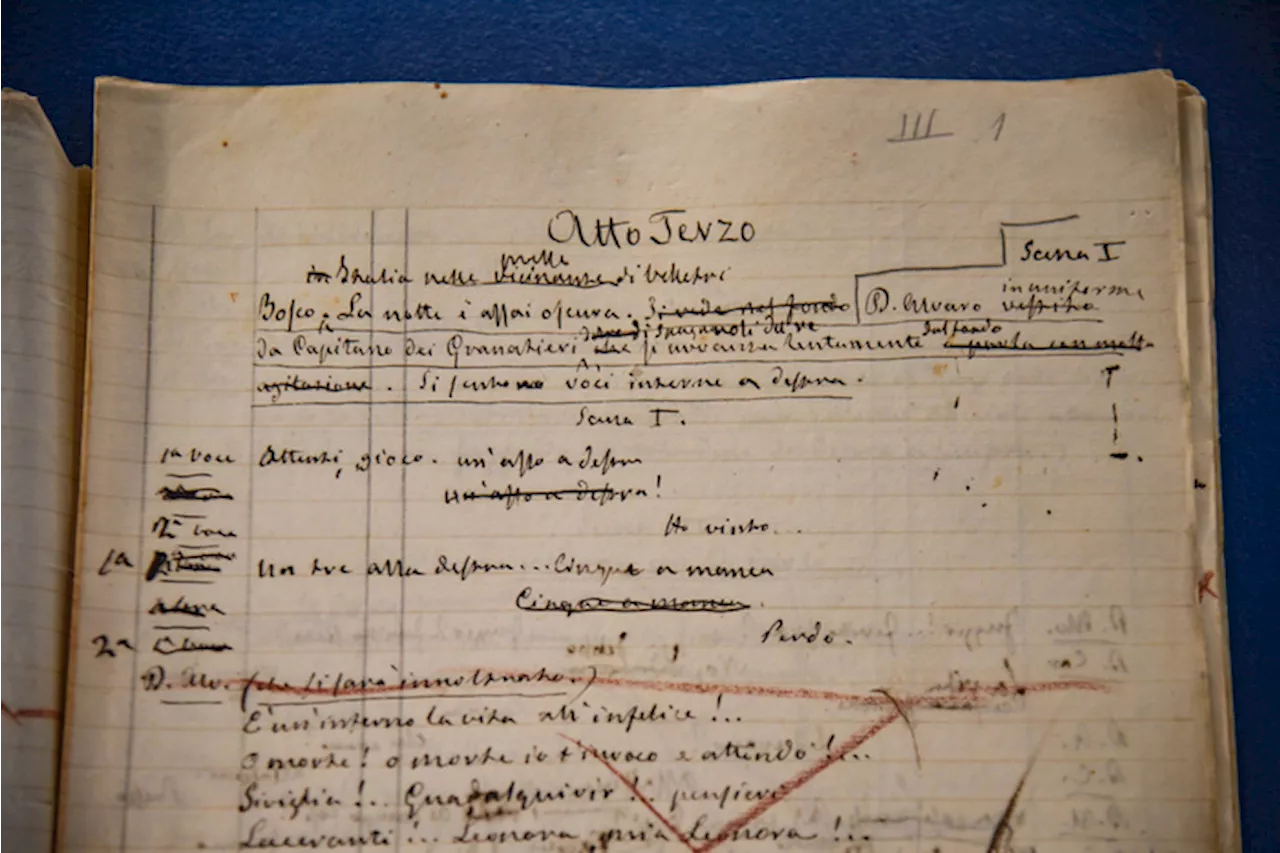 III 1
Atto Terzo
Scena I
in Italia nelle vicinanze di Velletri
presso
in uniforme
Bosco. La notte è assai oscura. Si vede nel fondo D. Alvaro vestito
di Spagnoli del re
da Capitano dei Granatieri si avanza lentamente parla con molta
agitazione. Si sentono voci interne a destra.
Scena I.
1ª voce Attenti, gioco. un'asso a destra
un'asso a destra!
2ª voce Ho vinto...
1ª Un tre alla destra... Cinque a manca
altra Cinque a manca.
2ª Perdo.
D. Alv. (che si sarà innoltrato.)
È un'inferno la vita all'infelice!..
O morte! o morte io t'invoco e attendo!...
Siviglia!.. Guadalquivir!.. pensieri
Laceranti!.. Leonora, mia Leonora!..